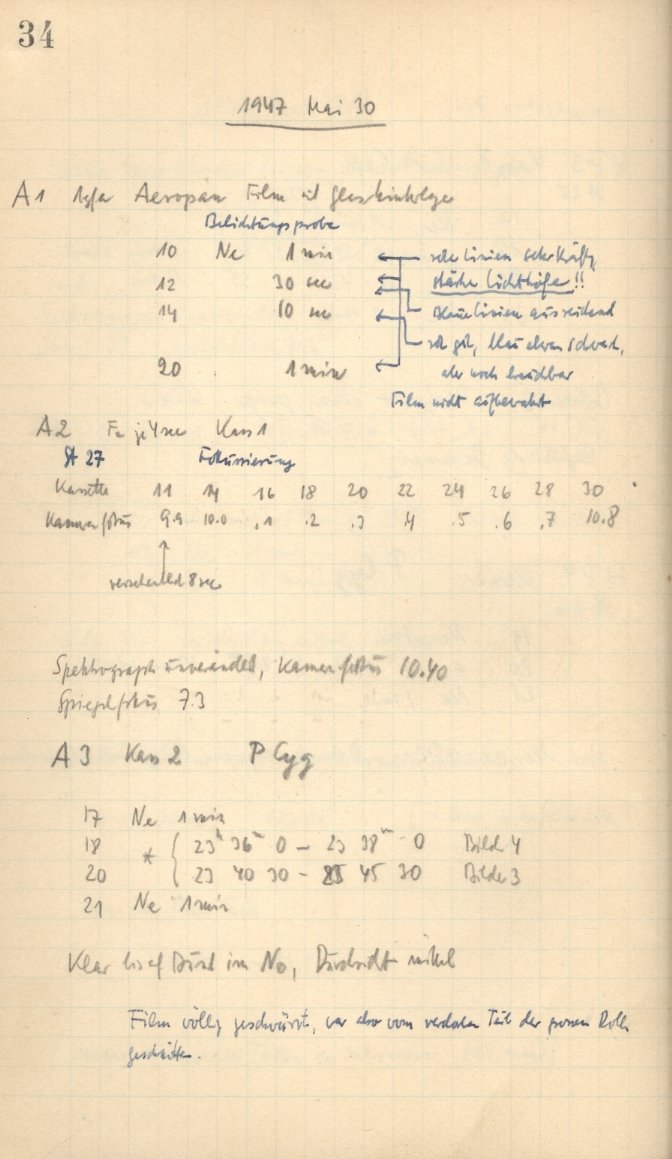 34
1947 Mai 30
A1 Agfa Aeropan Film
Belichtungsprobe
10 Ne 1 min rote Linien sehr kräftig,
12 30 sec starke Lichthöfe!!
14 10 sec blaue Linien ausreichend
rot gut, blau etwas schwach,
20 1 min aber noch brauchbar
Film nicht aufbewahrt
A2 Fe je 4 sec Kass 1
27 Fokussierung
Kassette 11 14 16 18 20 22 24 26 28 30
Kamerafokus 9.9 10.0 .1 .2 .3 .4 .5 .6 .7 10.8
8 sec
Spektrograph unverändert, Kamerafokus 10.40
Spiegelfokus 7.3
A3 Kass 2 P Cyg
17 Ne 1 min
18 * { 23h 36m 0 – 23 38m 0 Bilder 4
20 23 40 30 – 23 45 30 Bilder 3
21 Ne 1 min
Klar bis auf Dunst im NO, Durchsicht mittel
Film völlig geschwärzt, war also vom verdorbenen Teil der grossen Rolle
geschnitten.